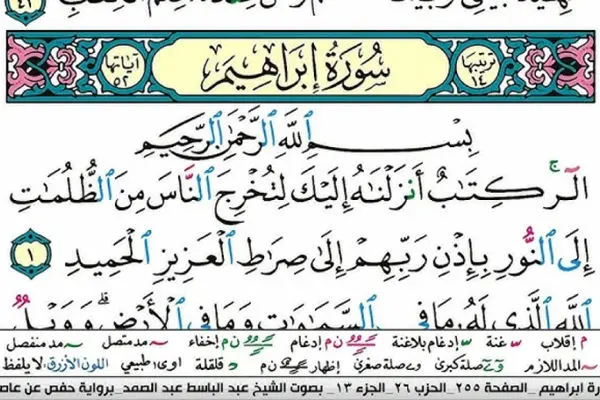 ترتيبها ١٤ سُورَةُ إِبْرَاهِيمَ آياتها ٥٢
بِسْمِ اللَّهِ الرَّحْمَٰنِ الرَّحِيمِ
الٓر ۚ كِتَٰبٌ أَنزَلْنَٰهُ إِلَيْكَ لِتُخْرِجَ النَّاسَ مِنَ الظُّلُمَٰتِ
إِلَى النُّورِ بِإِذْنِ رَبِّهِمْ إِلَىٰ صِرَٰطِ الْعَزِيزِ الْحَمِيدِ ١
اللَّهِ الَّذِي لَهُ مَا فِي السَّمَٰوَٰتِ وَمَا فِي الْأَرْضِ ۗ وَوَيْلٌ
م إقلاب س غنة س إدغام بلاغنة ن م إدغام ن م إخفاء مد متصل مد منفصل
المد اللازم صلة كبرى وصلة صغرى إظهار ن م قلقلة اوى طبيعي اللون الأزرق لا يلفظ
رة ابراهيم _ الصفحة ٢٥٥_ الحزب ٢٦_ الجزء ١٣ _ بصوت الشيخ عبد الباسط عبد الصمد_ برواية حفص عن عاص